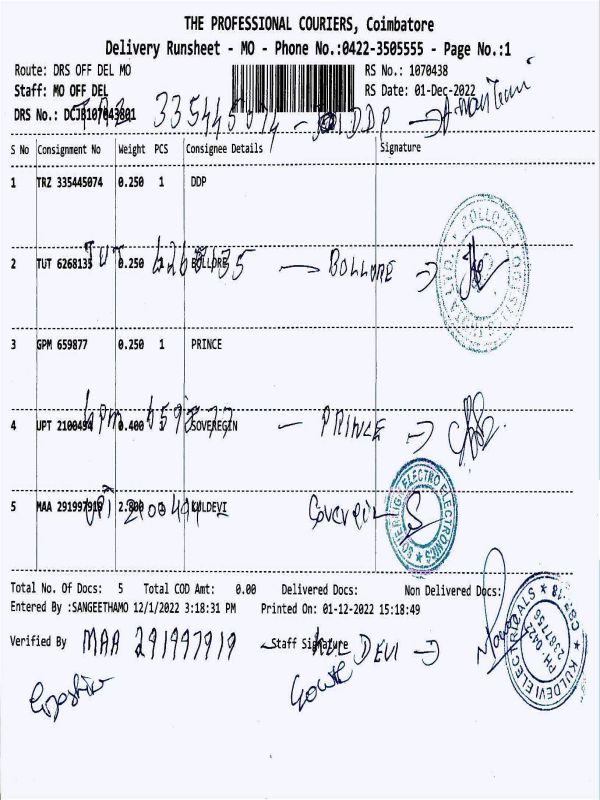 THE PROFESSIONAL COURIERS, Coimbatore
Delivery Runsheet - MO - Phone No.:0422-3505555 - Page No.:1
Route: DRS OFF DEL MO RS No.: 1070438
Staff: MO OFF DEL RS Date: 01-Dec-2022
DRS No.: DCJB107043801
TRZ 335445074 - DDP
S No Consignment No Weight PCS Consignee Details Signature
1 TRZ 335445074 0.250 1 DDP
2 TUT 6268135 0.250 BOLLORE
TUT 6268135 BOLLORE
3 GPM 659877 0.250 1 PRINCE
4 UPT 2100494 0.400 1 SOVEREGIN
GPM 659877 - PRINCE
5 MAA 291997919 KULDEVI
UPT 2100494 Soveregin
SOVEREIGN ELECTRO ELECTRONICS
Total No. Of Docs: 5 Total COD Amt: 0.00 Delivered Docs: Non Delivered Docs:
Entered By :SANGEETHAMO 12/1/2022 3:18:31 PM Printed On: 01-12-2022 15:18:49
Verified By Staff Signature
MAA 291997919 KULDEVI
KULDEVI ELECTRICALS
PH: 0422
2387756
CBE-18